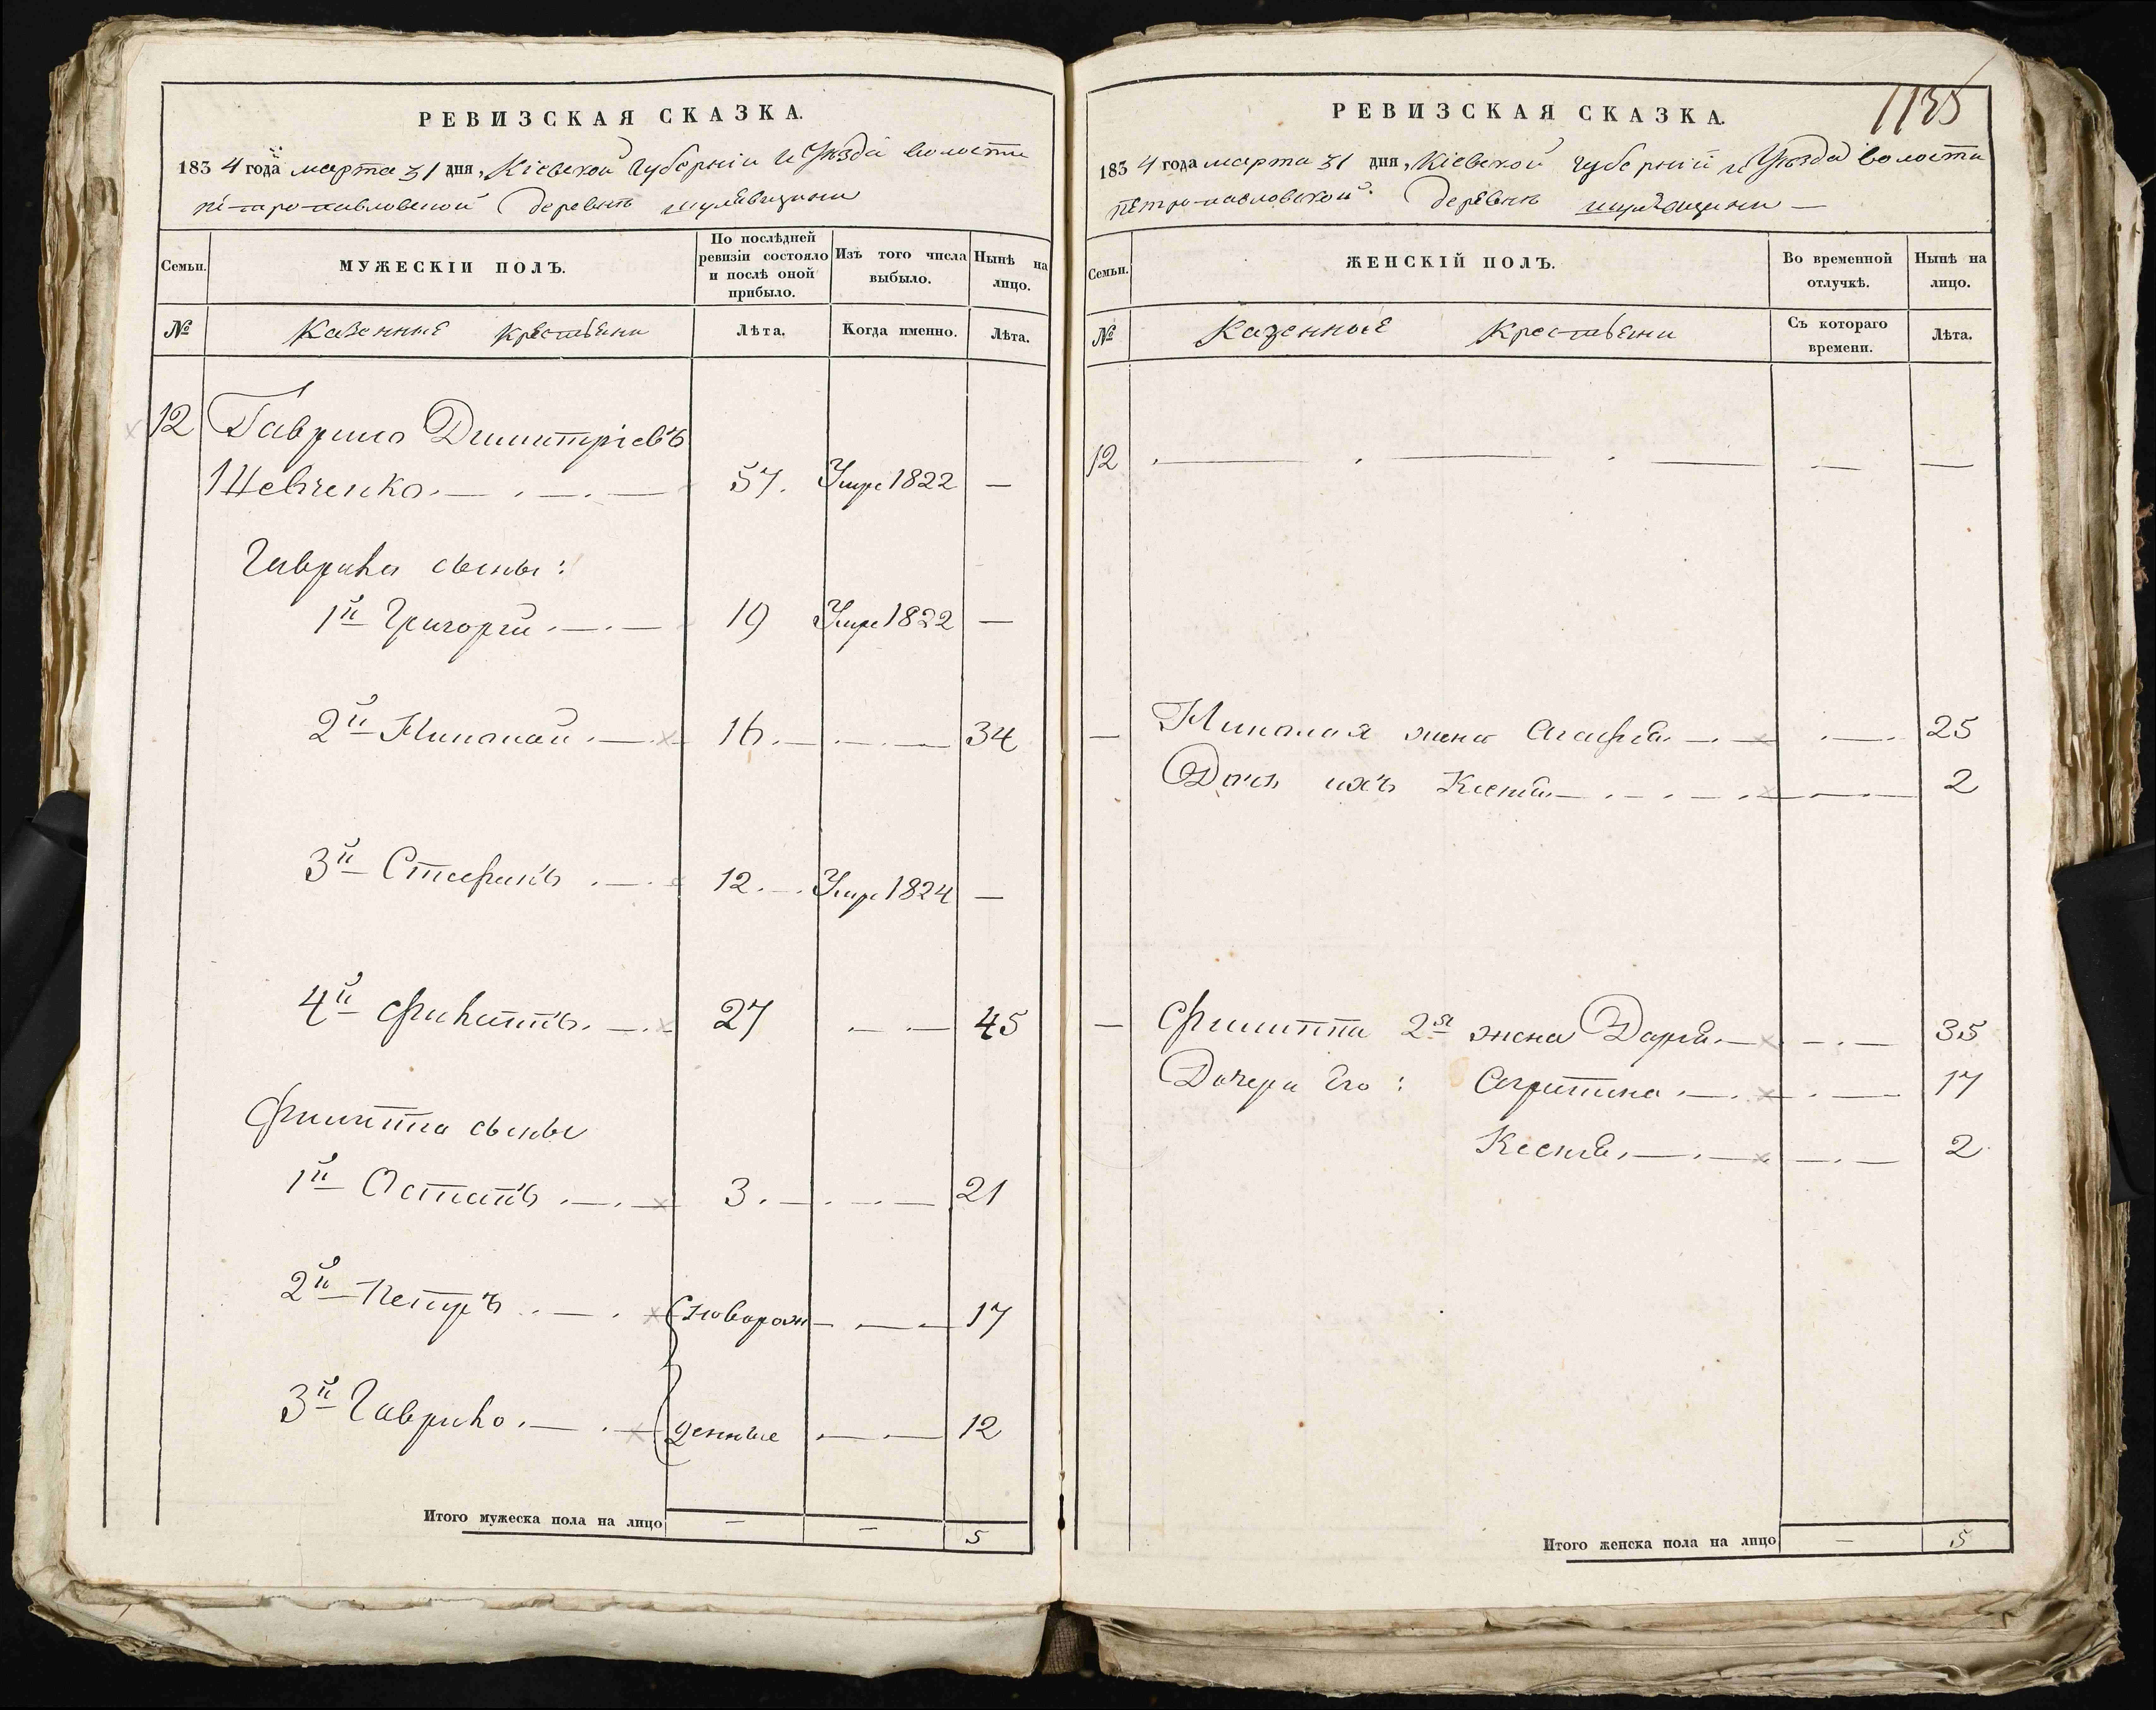 РЕВИЗСКАЯ СКАЗКА.
1834 года марта 31 дня, Кіевской Губерніи и Уѣзда волости
петро-павловской деревни шулявщины
Семьи.
МУЖЕСКІЙ ПОЛЪ.
По послѣдней ревизіи состояло и послѣ оной прибыло.
Изъ того числа выбыло.
Нынѣ на лицо.
№
Казенные крестьяни
Лѣта.
Когда именно.
Лѣта.
12 Гаврило Димитріевъ
Шевченко 57. Умре 1822 —
Гаврила сыны:
1й Григорій 19 Умре 1822 —
2й Николай 16 34
3й Стефанъ 12 Умре 1824 —
4й Филиппъ 27 45
Филиппа сыны
1й Остапъ 3 21
2й Петръ новорож 17
3й Гаврило денные 12
Итого мужеска пола на лицо — — 5
1135
РЕВИЗСКАЯ СКАЗКА.
1834 года марта 31 дня, Кіевской губерніи и Уѣзда волости
петро-павловской деревни шулявщини —
Семьи.
ЖЕНСКІЙ ПОЛЪ.
Во временной отлучкѣ.
Нынѣ на лицо.
№
Казенные Крестьяни
Съ котораго времени.
Лѣта.
12 — — —
— Николая жена Агафія 25
Дочь ихъ Ксенія 2
— Филиппа 2я жена Дарія 35
Дочери Его: Агрипина 17
Ксенія 2
Итого женска пола на лицо — 5